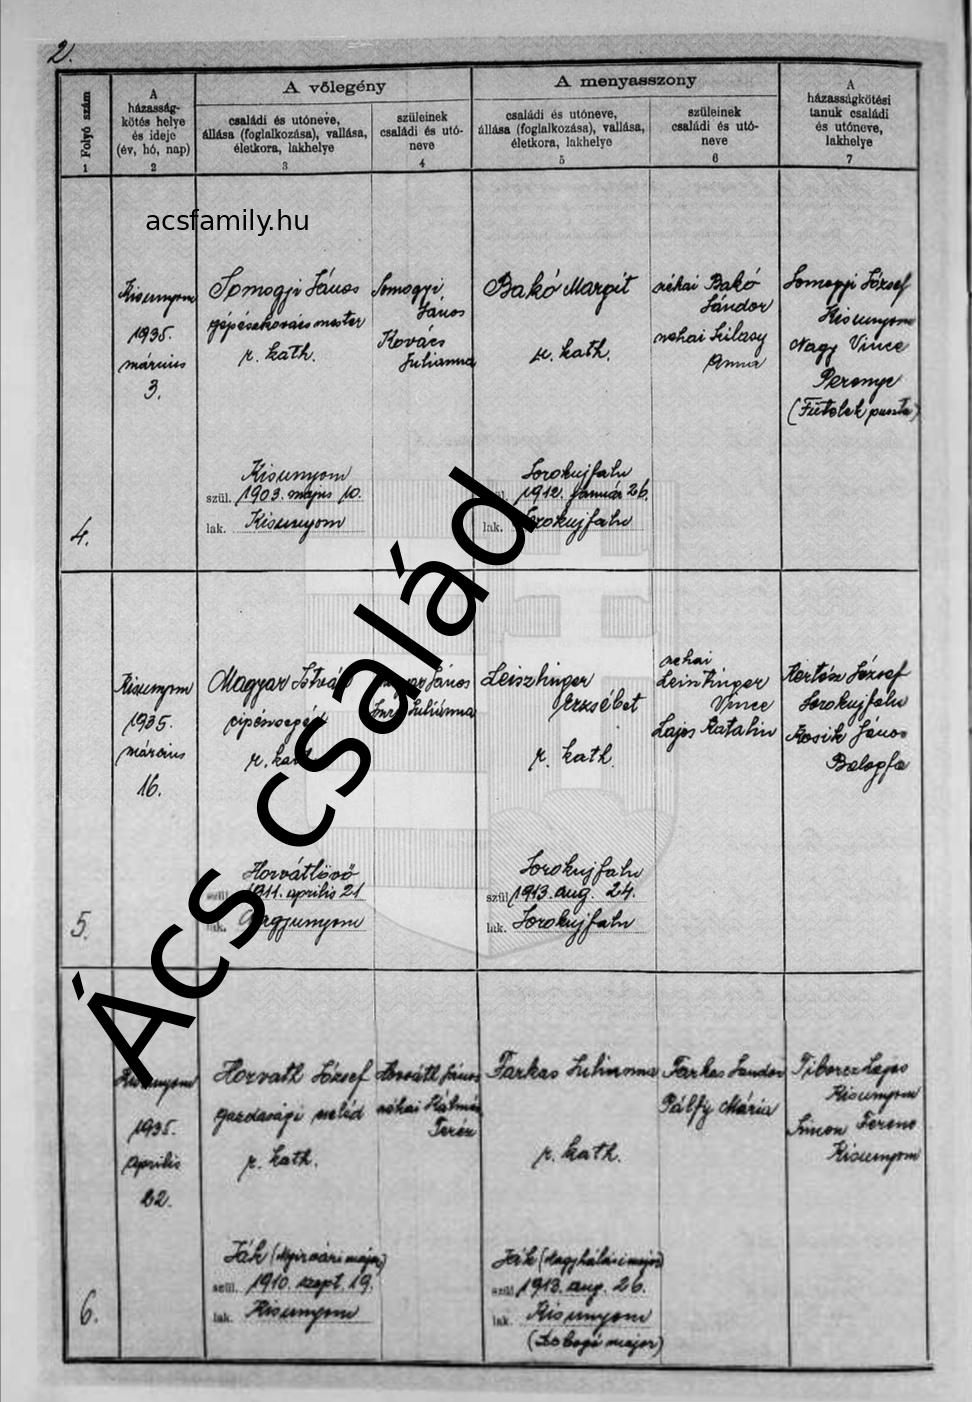 2.
Folyó szám
1
A
házasság-
kötés helye
és ideje
(év, hó, nap)
2
A vőlegény
családi és utóneve,
állása (foglalkozása), vallása,
életkora, lakhelye
3
szüleinek
családi és utó-
neve
4
A menyasszony
családi és utóneve,
állása (foglalkozása), vallása,
életkora, lakhelye
5
szüleinek
családi és utó-
neve
6
A
házasságkötési
tanuk családi
és utóneve,
lakhelye
7
acsfamily.hu
Ács család
4.
Kisunyom
1935.
március
3.
Somogyi János
gépészkovácsmester
r. kath.
Kisunyom
szül. 1903. május 10.
lak. Kisunyom
Somogyi
János
Kovács
Julianna
Bakó Margit
r. kath.
Sorokujfalu
1912. január 26.
lak. Sorokujfalu
néhai Bakó
Sándor
néhai Szilasy
Anna
Somogyi József
Kisunyom
Nagy Vince
Perenye
5.
Kisunyom
1935.
március
16.
Magyar István
cipészsegéd
r. kath.
Horvátlövő
szül. 1911. április 21
lak. Nagyunyom
Magyar János
Julianna
Leisztinger
Erzsébet
r. kath.
Sorokujfalu
szül. 1913. aug. 24.
lak. Sorokujfalu
néhai
Leisztinger
Vince
Lajos Katalin
Kertész József
Sorokujfalu
Kosik János
Balogfa
6.
Kisunyom
1935.
április
22.
Horvath József
gazdasági cseléd
r. kath.
Ják (Nyirvári major)
szül. 1910. szept. 19.
lak. Kisunyom
Horváth János
néhai Kálmán
Teréz
Farkas Julianna
r. kath.
Ják (Nagyhálási major)
szül. 1913. aug. 26.
lak. Kisunyom
major)
Farkas Sandor
Pálfy Mária
Tiborcz Lajos
Kisunyom
Simon Ferenc
Kisunyom